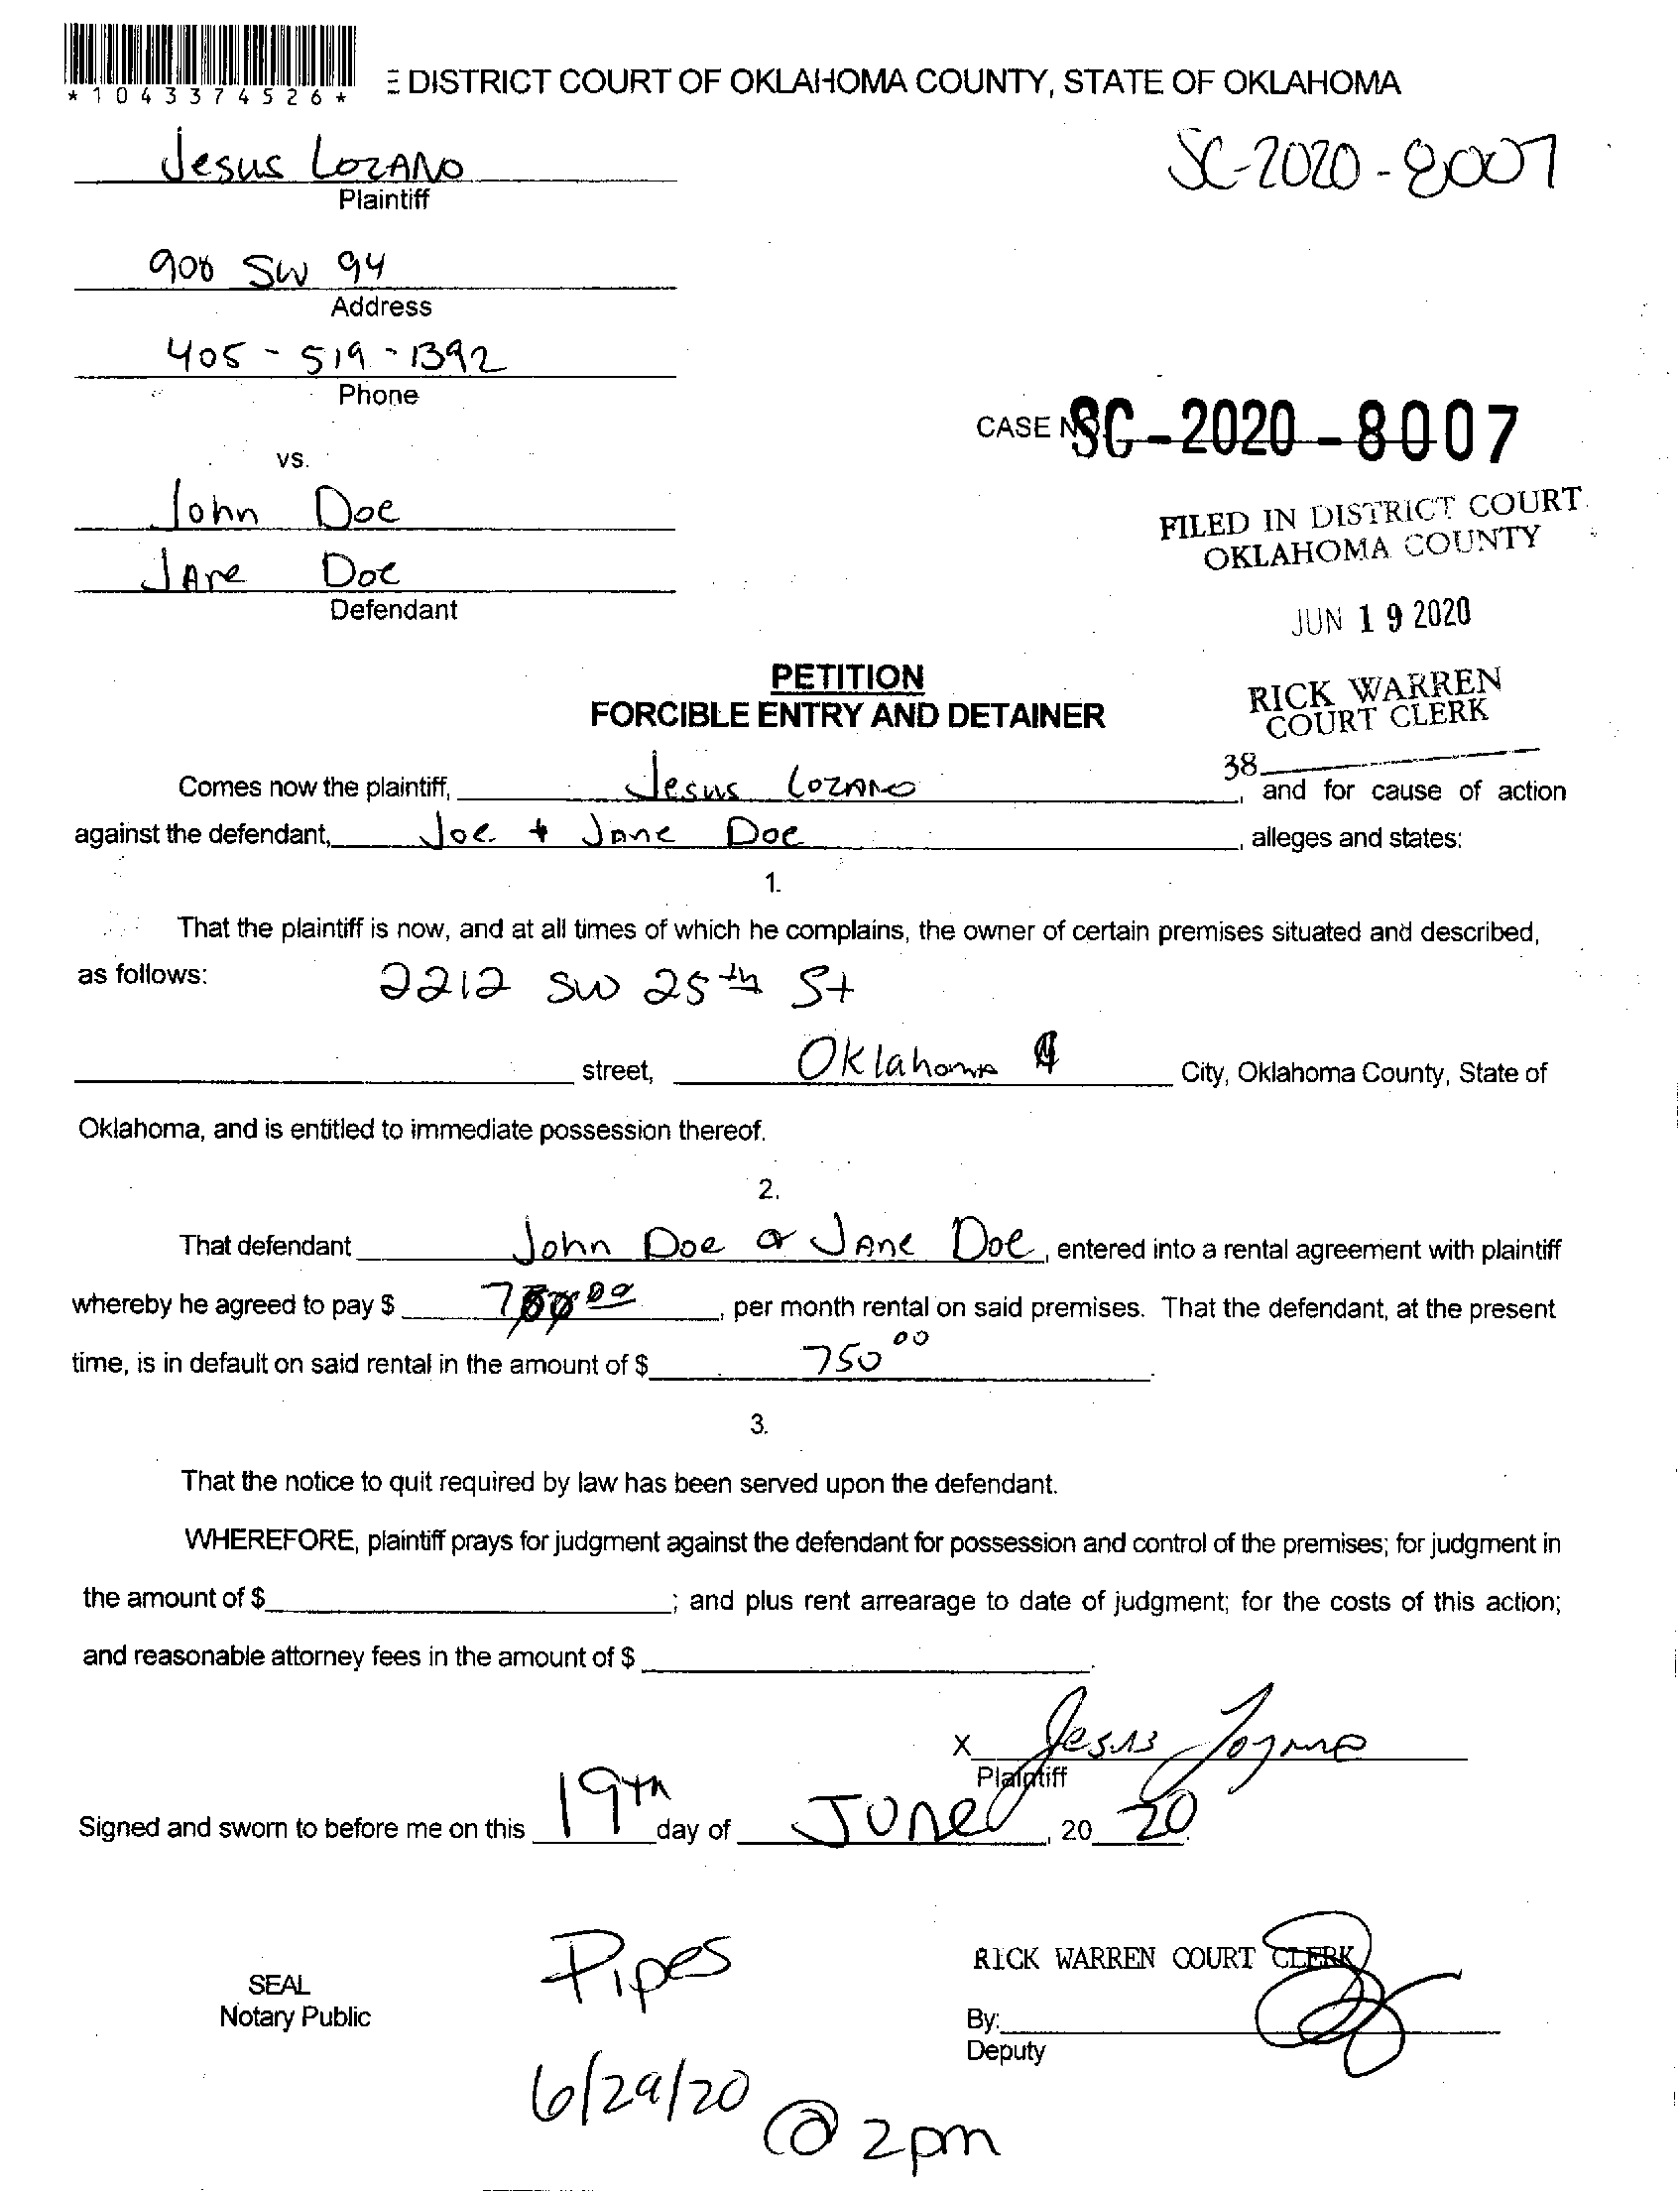 *1043374526*
DISTRICT COURT OF OKLAHOMA COUNTY, STATE OF OKLAHOMA
Jesus Lozano
Plaintiff
SC-2020-8007
908 SW 94
Address
405-519-1392
Phone
CASE NO. SC-2020-8007
vs.
John Doe
Jane Doe
Defendant
FILED IN DISTRICT COURT
OKLAHOMA COUNTY
JUN 19 2020
RICK WARREN
COURT CLERK
38
PETITION
FORCIBLE ENTRY AND DETAINER
Comes now the plaintiff, Jesus Lozano, and for cause of action
against the defendant, Joe + Jane Doe, alleges and states:
1.
That the plaintiff is now, and at all times of which he complains, the owner of certain premises situated and described,
as follows: 2212 SW 25th St
street, Oklahoma City, Oklahoma County, State of
Oklahoma, and is entitled to immediate possession thereof.
2.
That defendant John Doe or Jane Doe, entered into a rental agreement with plaintiff
whereby he agreed to pay $ , per month rental on said premises. That the defendant, at the present
time, is in default on said rental in the amount of $ 750 00.
3.
That the notice to quit required by law has been served upon the defendant.
WHEREFORE, plaintiff prays for judgment against the defendant for possession and control of the premises; for judgment in
the amount of $ ; and plus rent arrearage to date of judgment; for the costs of this action;
and reasonable attorney fees in the amount of $ .
X Jesus Lozano
Plaintiff
Signed and sworn to before me on this 19th day of June, 20 20.
Pipes
RICK WARREN COURT CLERK
SEAL
Notary Public
By:
Deputy
6/29/20 @ 2pm